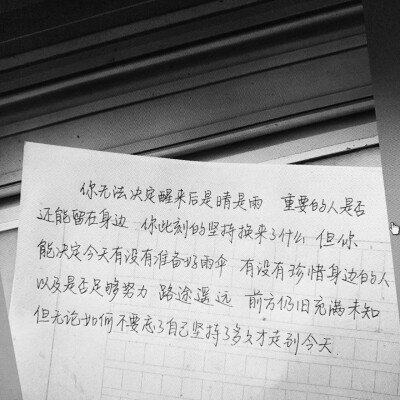 你无法决定醒来后是晴是雨 重要的人是否
还能留在身边 你此刻的坚持换来了什么 但你
能决定今天有没有准备好雨伞 有没有珍惜身边的人
以及是否足够努力 路途遥远 前方仍旧充满未知
但无论如何不要忘了自己坚持了多久才走到今天